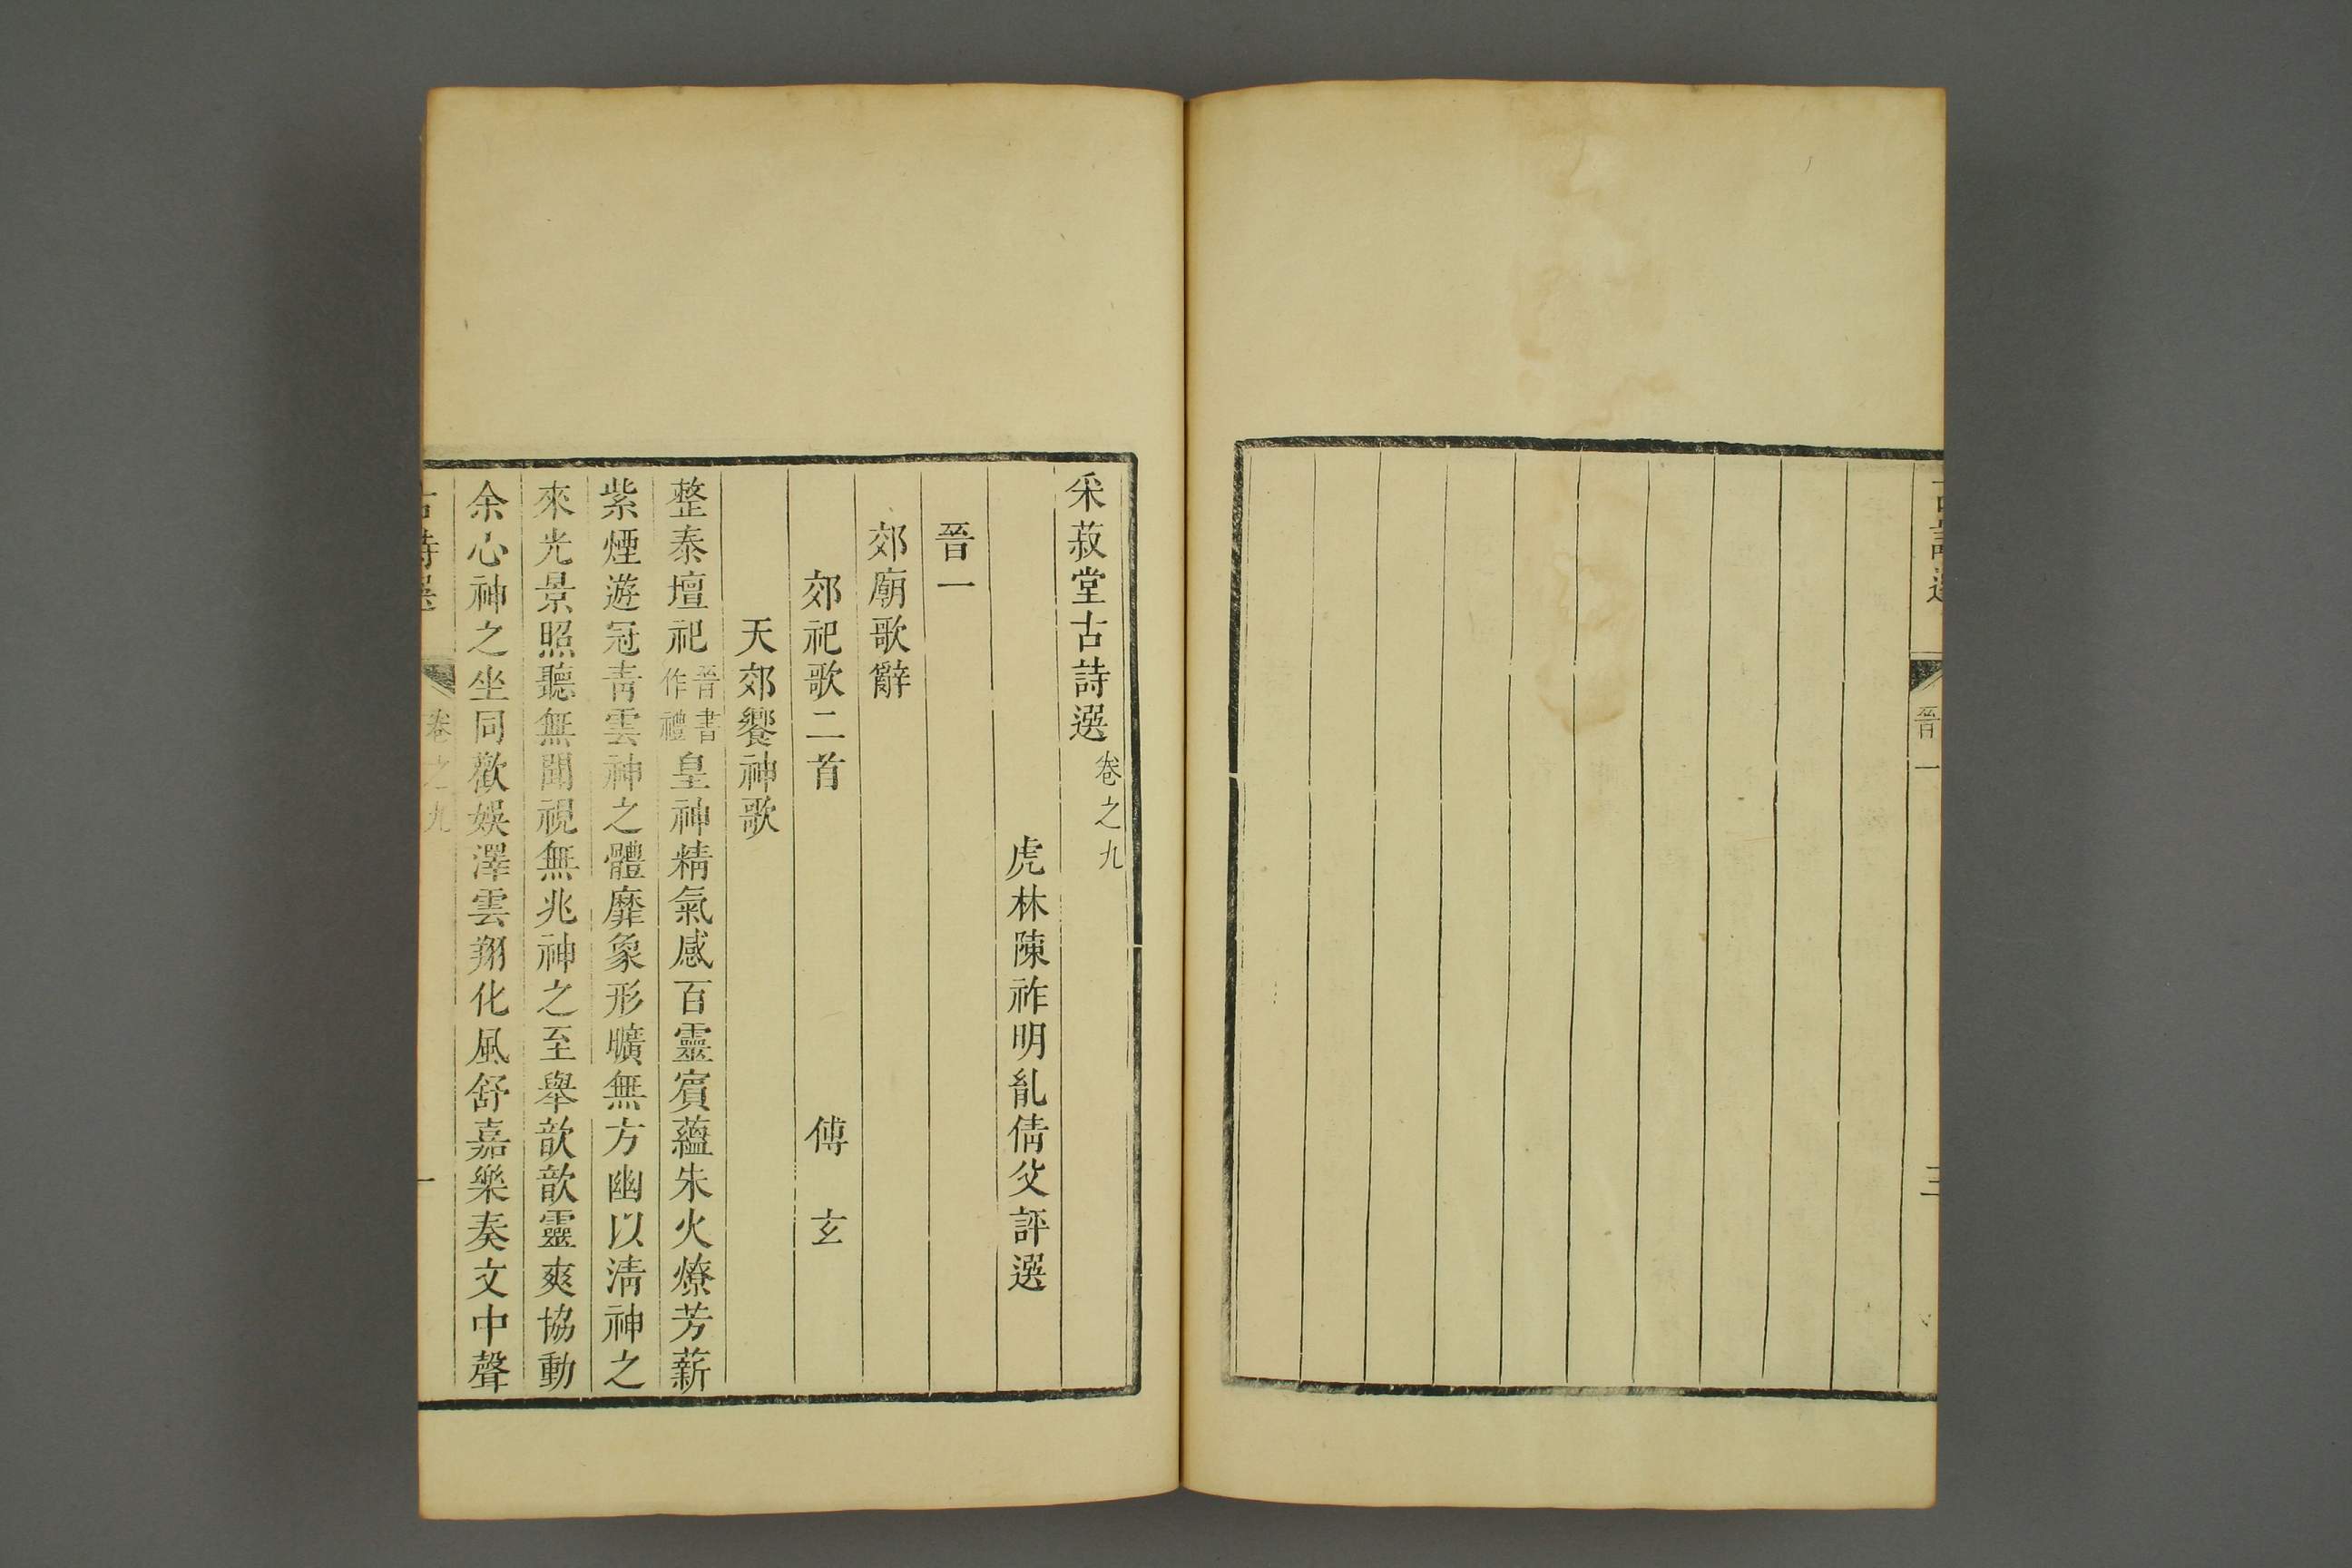 晉一
三
采菽堂古詩選卷之九
虎林陳祚明胤倩父評選
晉一
郊廟歌辭
郊祀歌二首 傅玄
天郊饗神歌
整泰壇祀晉書作禮皇神精氣感百靈賓蘊朱火燎芳薪
紫煙遊冠靑雲神之體靡象形曠無方幽以淸神之
來光景照聽無聞視無兆神之至舉歆歆靈爽協動
余心神之坐同歡娛澤雲翔化風舒嘉樂奏文中聲
古詩選 卷之九 一